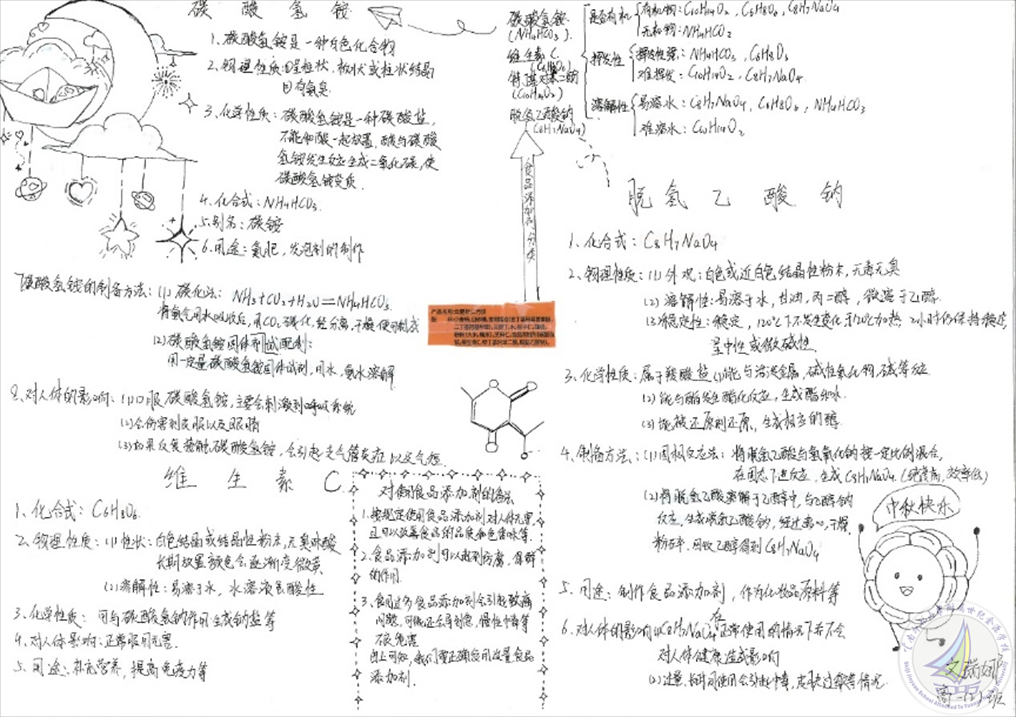 碳酸氢铵
1、碳酸氢铵是一种白色化合物
2、物理性质:呈粒状,板状或柱状结晶
且有氨臭
3、化学性质:碳酸氢铵是一种碳酸盐,
不能和酸一起放置,酸与碳酸
氢铵发生反应生成二氧化碳,使
碳酸氢铵变质.
4、化合式:NH4HCO3
5、别名:碳铵
6、用途:氮肥,发泡剂的制作
7、碳酸氢铵的制备方法:(1)碳化法: NH3+CO2+H2O=NH4HCO3
将氨气用水吸收后,用CO2碳化,经分离、干燥
(2)碳酸氢铵固体剂试配制:
用一定量碳酸氢铵固体试剂,用水,氨水溶解
8、对人体的影响:(1)口服碳酸氢铵,主要会刺激到呼吸系统
(2)会伤害到皮肤以及眼睛
(3)如果反复接触碳酸氢铵,会引起支气管炎症以及气短
维生素C
1、化合式:C6H8O6
2、物理性质:(1)性状:白色结晶或结晶性粉末,无臭味酸
长期放置颜色会逐渐变微黄
(2)溶解性:易溶于水,水溶液呈酸性
3、化学性质:可与碳酸氢钠作用生成钠盐等
4、对人体影响:正常服用无害.
5、用途:补充营养,提高免疫力等
对食品添加剂的看法
1、按规定使用食品添加剂,对人体无害,
还可以改善食品的品质和色香味等.
2、食品添加剂可以起到防腐,保鲜
的作用.
3、食用过多食品添加剂会引起致病
问题,
由上可知,我们要正确应用适量食品
添加剂.
食品添加剂分类
碳酸氢铵
(NH4HCO3)
维生素C
(C6H8O6)
(C10H14O2)
脱氢乙酸钠
(C8H7NaO4)
是否有机
有机物:C10H14O2、C6H8O6、C8H7NaO4
无机物:NH4HCO3
挥发性
NH4HCO3、C6H8O6
难挥发:C10H14O2、C8H7NaO4
溶解性
易溶水:C8H7NaO4、C6H8O6、NH4HCO3
难溶水:C10H14O2
脱氢乙酸钠
1、化合式:C8H7NaO4
2、物理性质:(1)外观:白色或近白色结晶性粉末,无毒无臭
(2)溶解性:易溶于水,甘油,丙二醇,微溶于乙醇.
(3)稳定性:稳定,120℃下不发生变化于120℃加热2小时仍保持稳定
呈中性或微碱性.
3、化学性质:属于羧酸盐(1)能与活泼金属,碱性氧化物,碱等反应
(2)能与醇发生酯化反应,生成酯和水.
(3)能被还原剂还原,生成相应的醇.
4、制备方法:(1)固相反应法:将脱氢乙酸与氢氧化钠按一定比例混合,
在固态下进行反应,生成C8H7NaO4(纯度高,效率低)
(2)将脱氢乙酸溶解于乙醇中,与乙醇钠
反应,生成脱氢乙酸钠,经过离心,干燥
粉碎,回收乙醇得到C8H7NaO4
5、用途:制作食品添加剂,作为化妆品原料等
6、对人体的影响:(1)C8H7NaO4在正常使用的情况下并不会
对人体健康造成影响
(2)过量、长时间使用会引起中毒,皮肤过敏等情况.
中秋快乐
高一(1)班